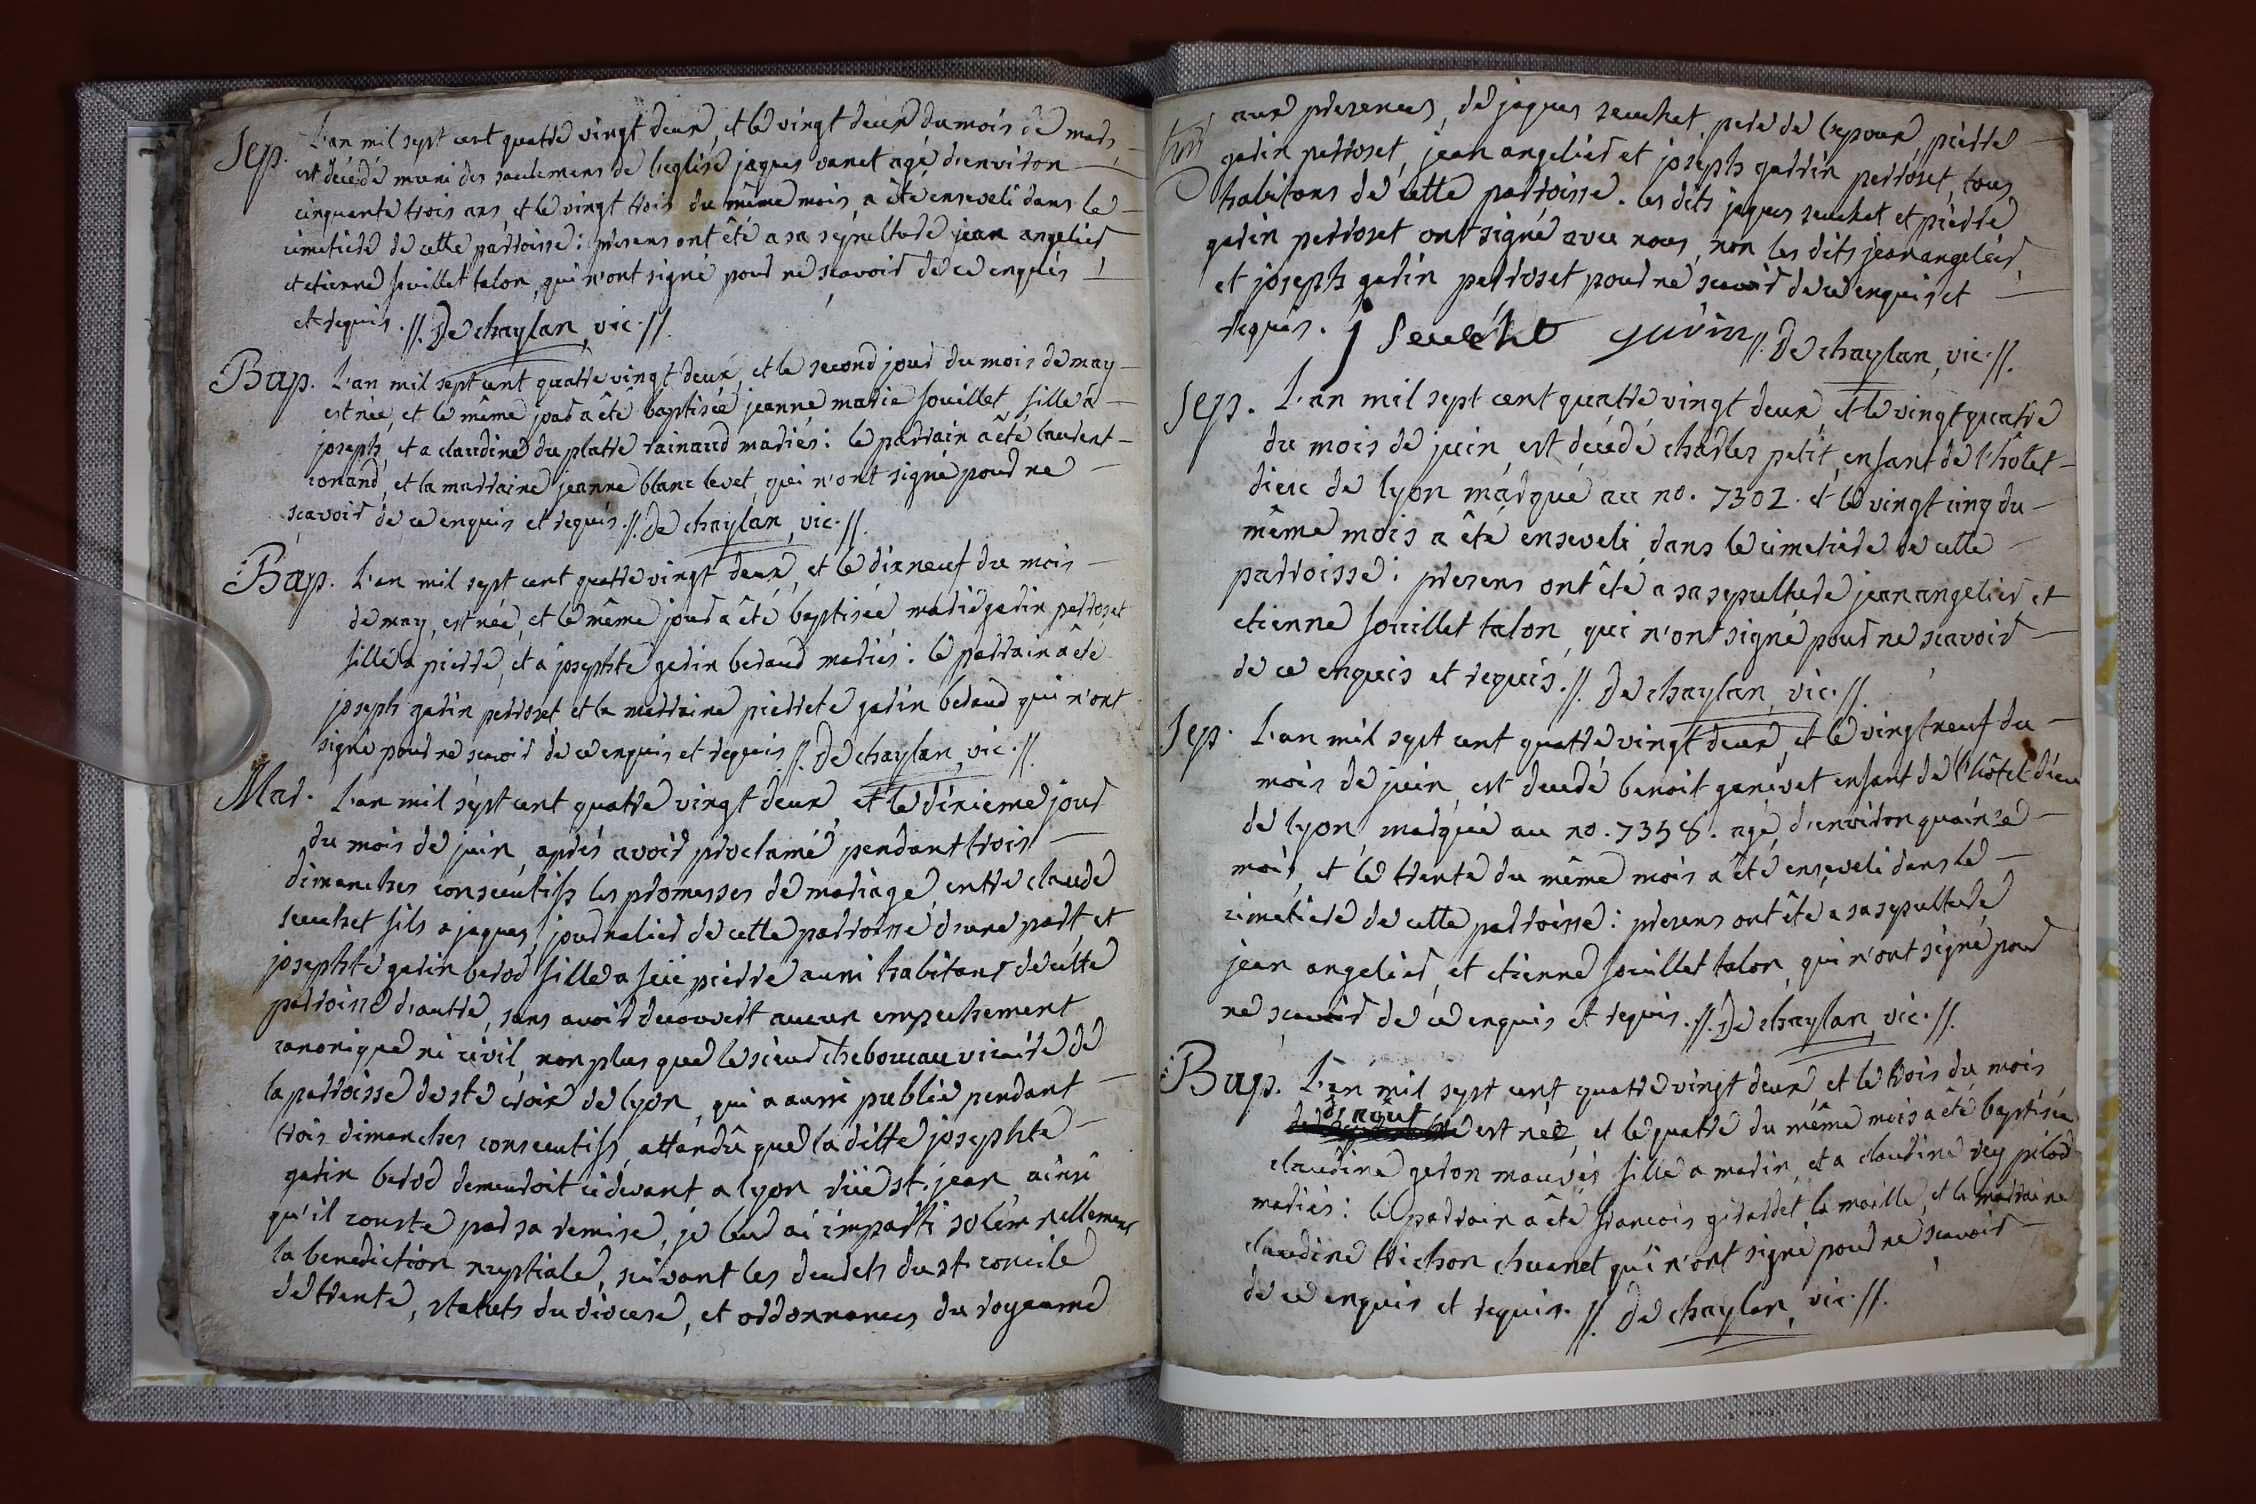 Sep. L'an mil sept cent quatre vingt deux, et le vingt deux du mois de mars
est décédé muni des sacremens de l'eglise jaques vanet agé d'environ
cinquante trois ans, et le vingt trois du même mois, a été enseveli dans le
cimetiere de cette parroisse: presens ont été a sa sepulture jean angelier
et etienne souillet talon, qui n'ont signé pour ne sçavoir de ce enquis
et requis. //. De chaylan, vic. //.
Bap. L'an mil sept cent quatre vingt deux, et le second jour du mois de may
est née, et le même jour a êté baptisée jeanne marie souillet, fille à
joseph, et a claudine du platre rainaud mariés: le parrain a êté laurent
conand, et la marraine jeanne blanc levet, qui n'ont signé pour ne
sçavoir de ce enquis et requis. //. De chaylan, vic. //.
Bap. L'an mil sept cent quatre vingt deux, et le dix neuf du mois
de may, est née, et le même jour a êté baptisée marie garin perroset
fille a pierre, et a josephte garin beraud mariés: le parrain a êté
joseph garin perroset et la marraine pierrete garin beraud qui n'ont
signé pour ne sçavoir de ce enquis et requis //. De chaylan, vic. //.
Mar. L'an mil sept cent quatre vingt deux, et le dixieme jour
du mois de juin, aprés avoir proclamé pendant trois
dimanches consecutifs les promesses de mariage, entre claude
seuchet fils a jaques, journalier de cette parroisse d'une part, et
josephte garin berod fille a feü pierre aussi habitant de cette
parroisse d'autre, sans avoir decouvert aucun empechement
canonique ni civil, non plus que le sieur cheboucau vicaire de
la parroisse de ste croix de lyon, qui a aussi publié pendant
trois dimanches consecutifs, attendû que la ditte josephte
garin berod demeuroit cidevant a lyon rüe st. jean ainsi
qu'il conste par sa remise, je leur ai imparti solemnellement
la benediction nuptiale, suivant les decrets du st. concile
de trente, statuts du diocese, et ordonnances du royaume
aux presences, de jaques seuchet pere de l'epoux, pierre
garin perroset, jean angelier et joseph garrin perroset, tous
habitans de cette parroisse. les dits jaques seuchet et pierre
garin perroset ont signé avec nous, non les dits jean angelier,
et joseph garin perroset pour ne scavoir de ce enquis et
requis. j seuchet garin //. De chaylan, vic. //.
Sep. L'an mil sept cent quatre vingt deux, et le vingt quatre
du mois de juin, est décédé charles petit, enfant de l'hôtel
dieu de lyon marqué au no. 7302. et le vingt cinq du
même mois a êté enseveli dans le cimetiere de cette
parroisse: presens ont êté a sa sepulture jean angelier, et
etienne souillet talon, qui n'ont signé pour ne scavoir
de ce enquis et requis. //. De chaylan, vic. //.
Sep. L'an mil sept cent quatre vingt deux, et le vingt neuf du
mois de juin, est decedé benoit genevet enfant de l'hôtel dieu
de lyon marqué au no. 7358. agé d'environ quainze
mois, et le trente du même mois a êté enseveli dans le
cimetiere de cette parroisse: presens ont êté a sa sepulture
jean angelier, et etienne souillet talon, qui n'ont signé pour
ne sçavoir de ce enquis et requis. //. De chaylan, vic. //.
Bap. L'an mil sept cent quatre vingt deux, et le trois du mois
d'août est née, et le quatre du même mois a êté baptisée
claudine geron mauvés fille a marin, et a claudine rey pilod
mariés: le parrain a êté francois girardet la maille, et la marraine
claudine trichon chuanet qui n'ont signé pour ne scavoir
de ce enquis et requis. //. De chaylan, vic. //.